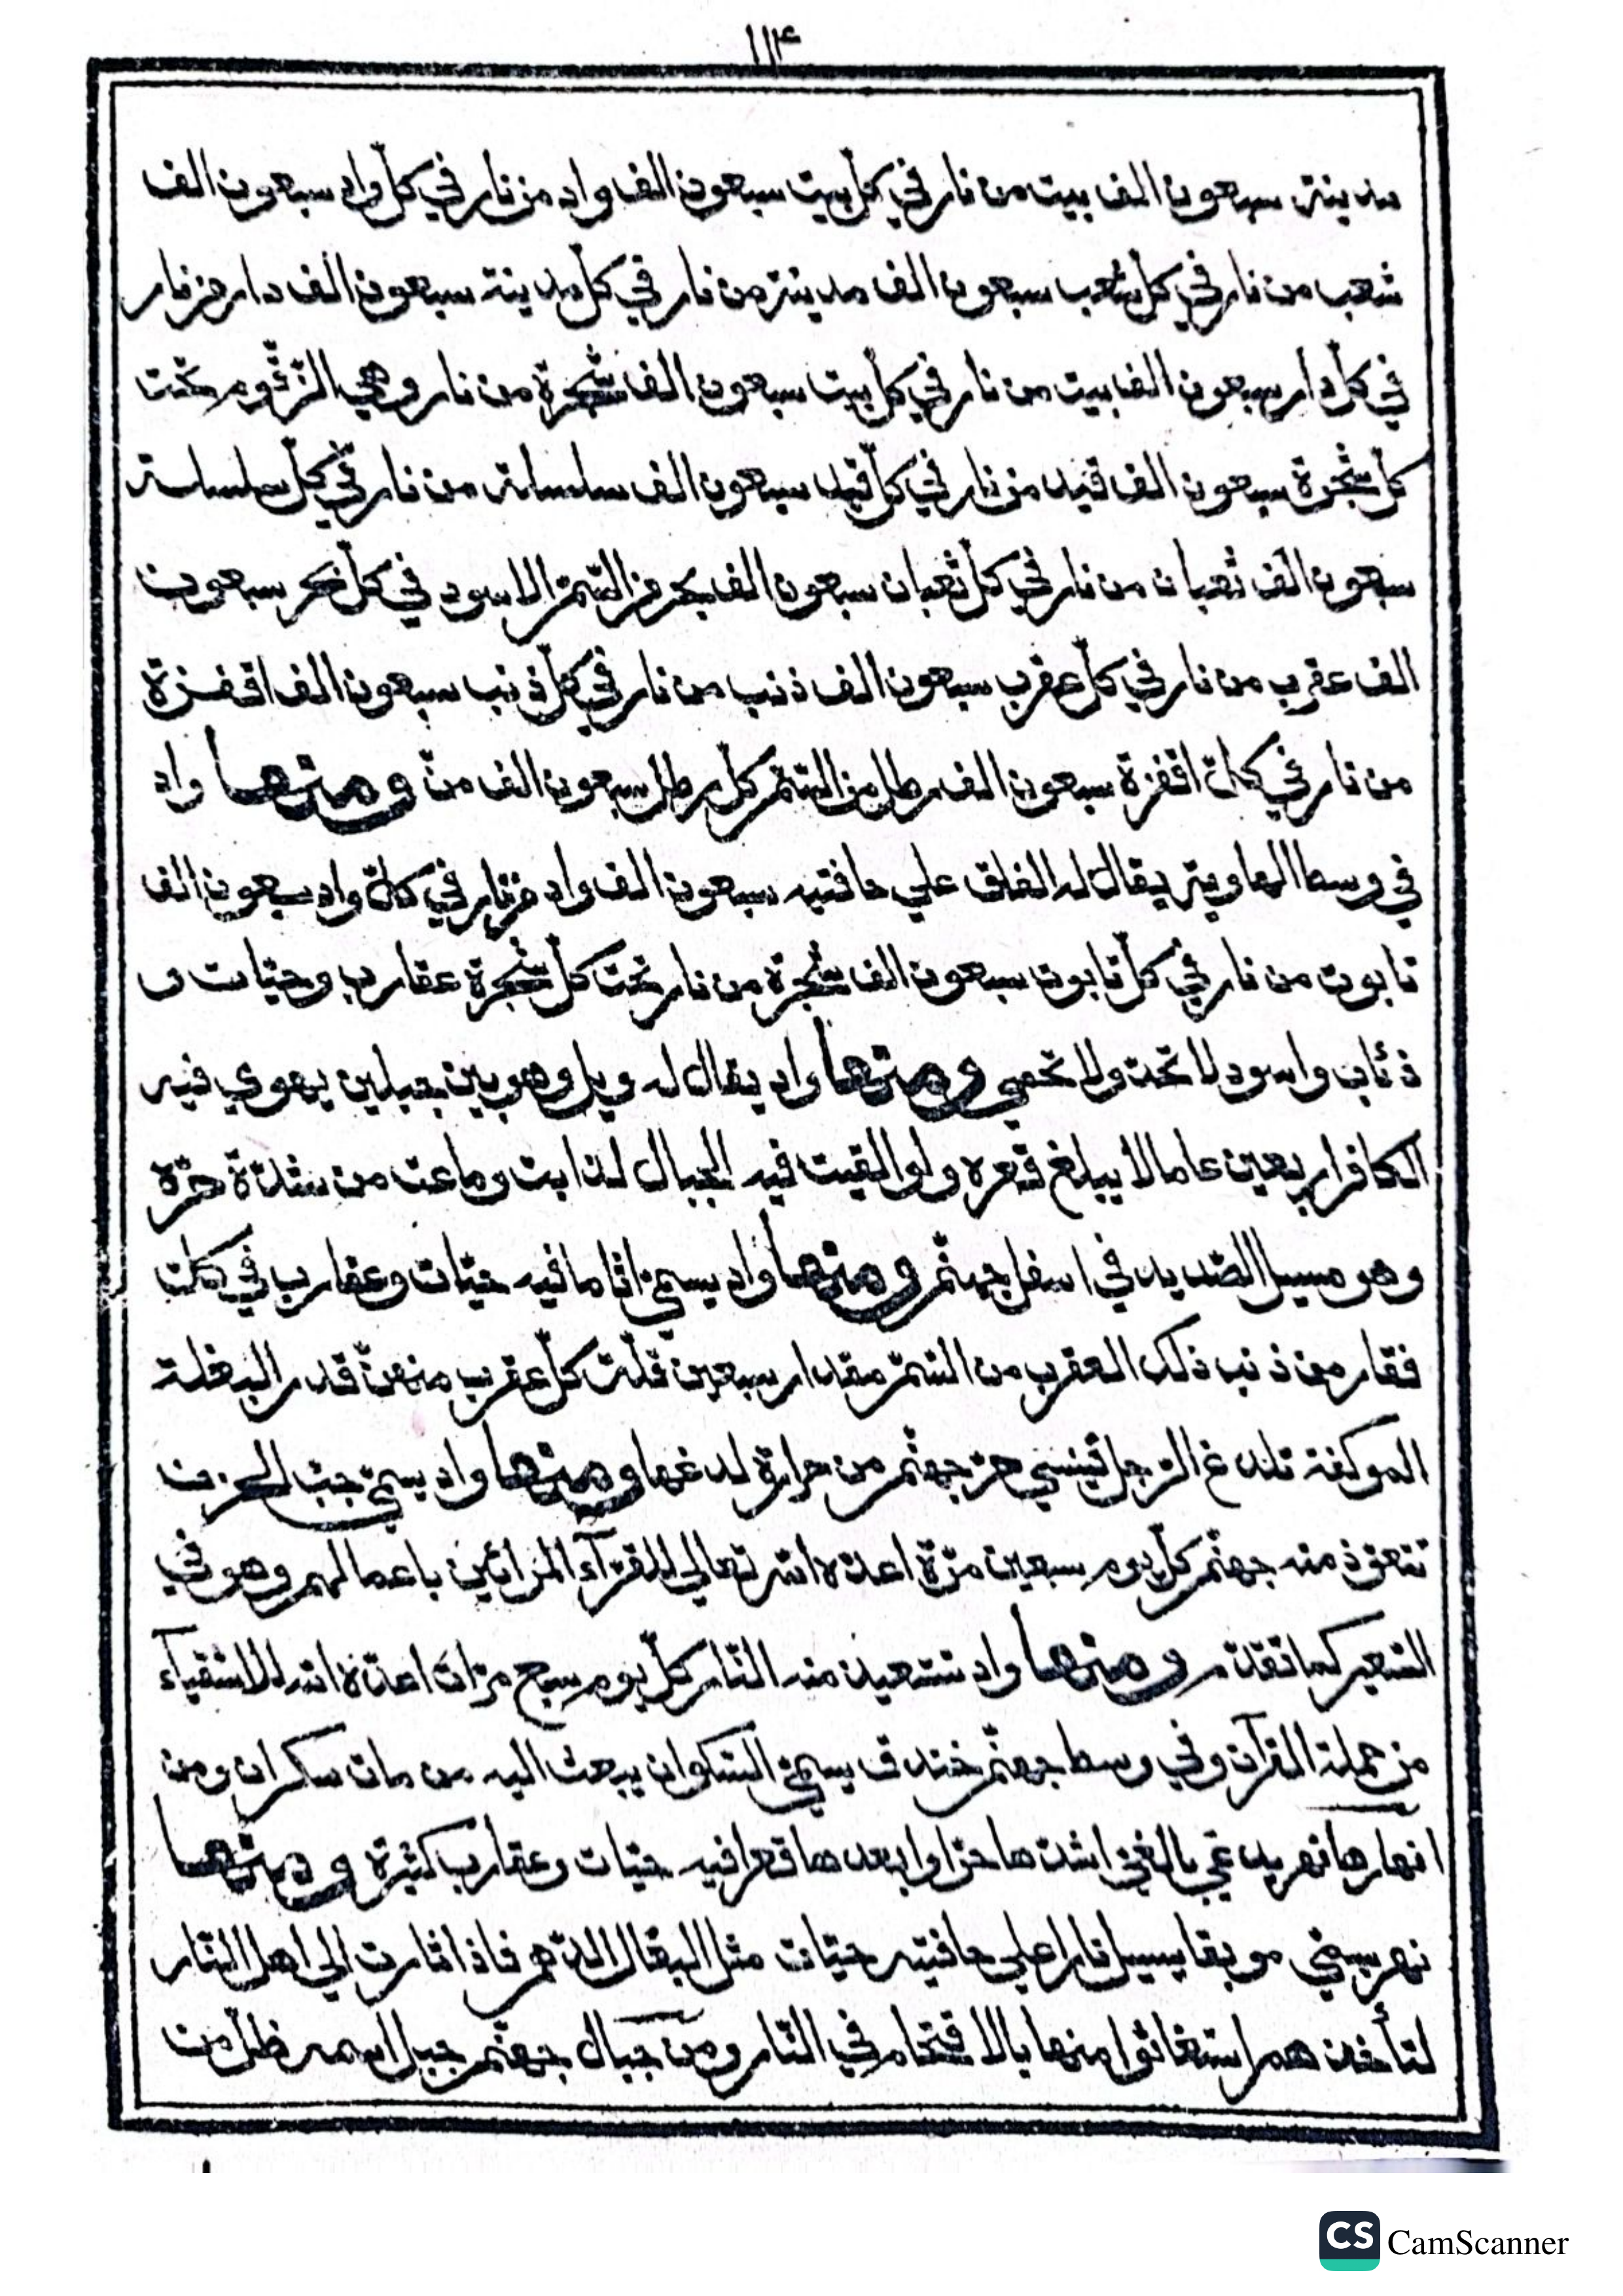 ١١٤
مدينة سبعون الف بيت من نار في كل بيت سبعون الف واد من نار في كلّ واد سبعون الف
شعب من نار في كل شعب سبعون الف مدينة من نار في كل مدينة سبعون الف دار من نار
في كلّ دار سبعون الف بيت من نار في كلّ بيت سبعون الف شجرة من نار وهي الزّقّوم تحت
كلّ شجرة سبعون الف قيد من نار في كلّ قيد سبعون الف سلسلة من نار في كلّ سلسلة
سبعون الف ثعبان من نار في كلّ ثعبان سبعون الف بحر من السّمّ الاسود في كلّ بحر سبعون
الف عقرب من نار في كلّ عقرب سبعون الف ذنب من نار في كلّ ذنب سبعون الف اقفزة
من نار في كلّ اقفزة سبعون الف رطل من السّمّ كلّ رطل سبعون الف منّ ومنها واد
في وسط الهاوية يقال له الفلق علي حافتيه سبعون الف واد من نار في كلّ واد سبعون الف
تابوت من نار في كلّ تابوت سبعون الف شجرة من نار تحت كلّ شجرة عقارب وحيّات و
ذئاب واسود لا تحدّ ولا تحصي ومنها واد يقال له ويل وهو بين جبلين يهوي فيه
الكافر اربعين عاما لا يبلغ قعره ولو القيت فيه الجبال لذابت وماعت من شدّة حرّه
وهو مسيل الصّديد في اسفل جهنّم ومنها واد يسمّي اثاما فيه حيّات وعقارب في كلّ
فقار من ذنب ذلك العقرب من السّمّ مقدار سبعين قلّة كلّ عقرب منهنّ قدر البغلة
الموكفة تلدغ الرّجل فينسي حرّ جهنّم من حرارة لدغها ومنها واد يسمّي جبّ الحزن
تتعوّذ منه جهنّم كلّ يوم سبعين مرّة اعدّه الله تعالي للقرّآء المرائين باعمالهم وهو في
السّعير كما تقدّم ومنها واد تستعيذ منه النّار كلّ يوم سبع مرّات اعدّه الله للاشقيآء
من حملة القرآن وفي وسط جهنّم خندق يسمّي السّكران يبعث اليه من مات سكران ومن
انهارها نهر يدعي بالغيّ اشدّها حرّا وابعدها قعرا فيه حيّات وعقارب كثيرة ومنها
نهر يسمّي موبقا يسيل نارا علي حافتيه حيّات مثل البغال الدّهم فاذا ثارت الي اهل النّار
لتأخذهم استغاثوا منها بالاقتحام في النّار ومن جبال جهنّم جبل اسمه ظلّ من
CS CamScanner